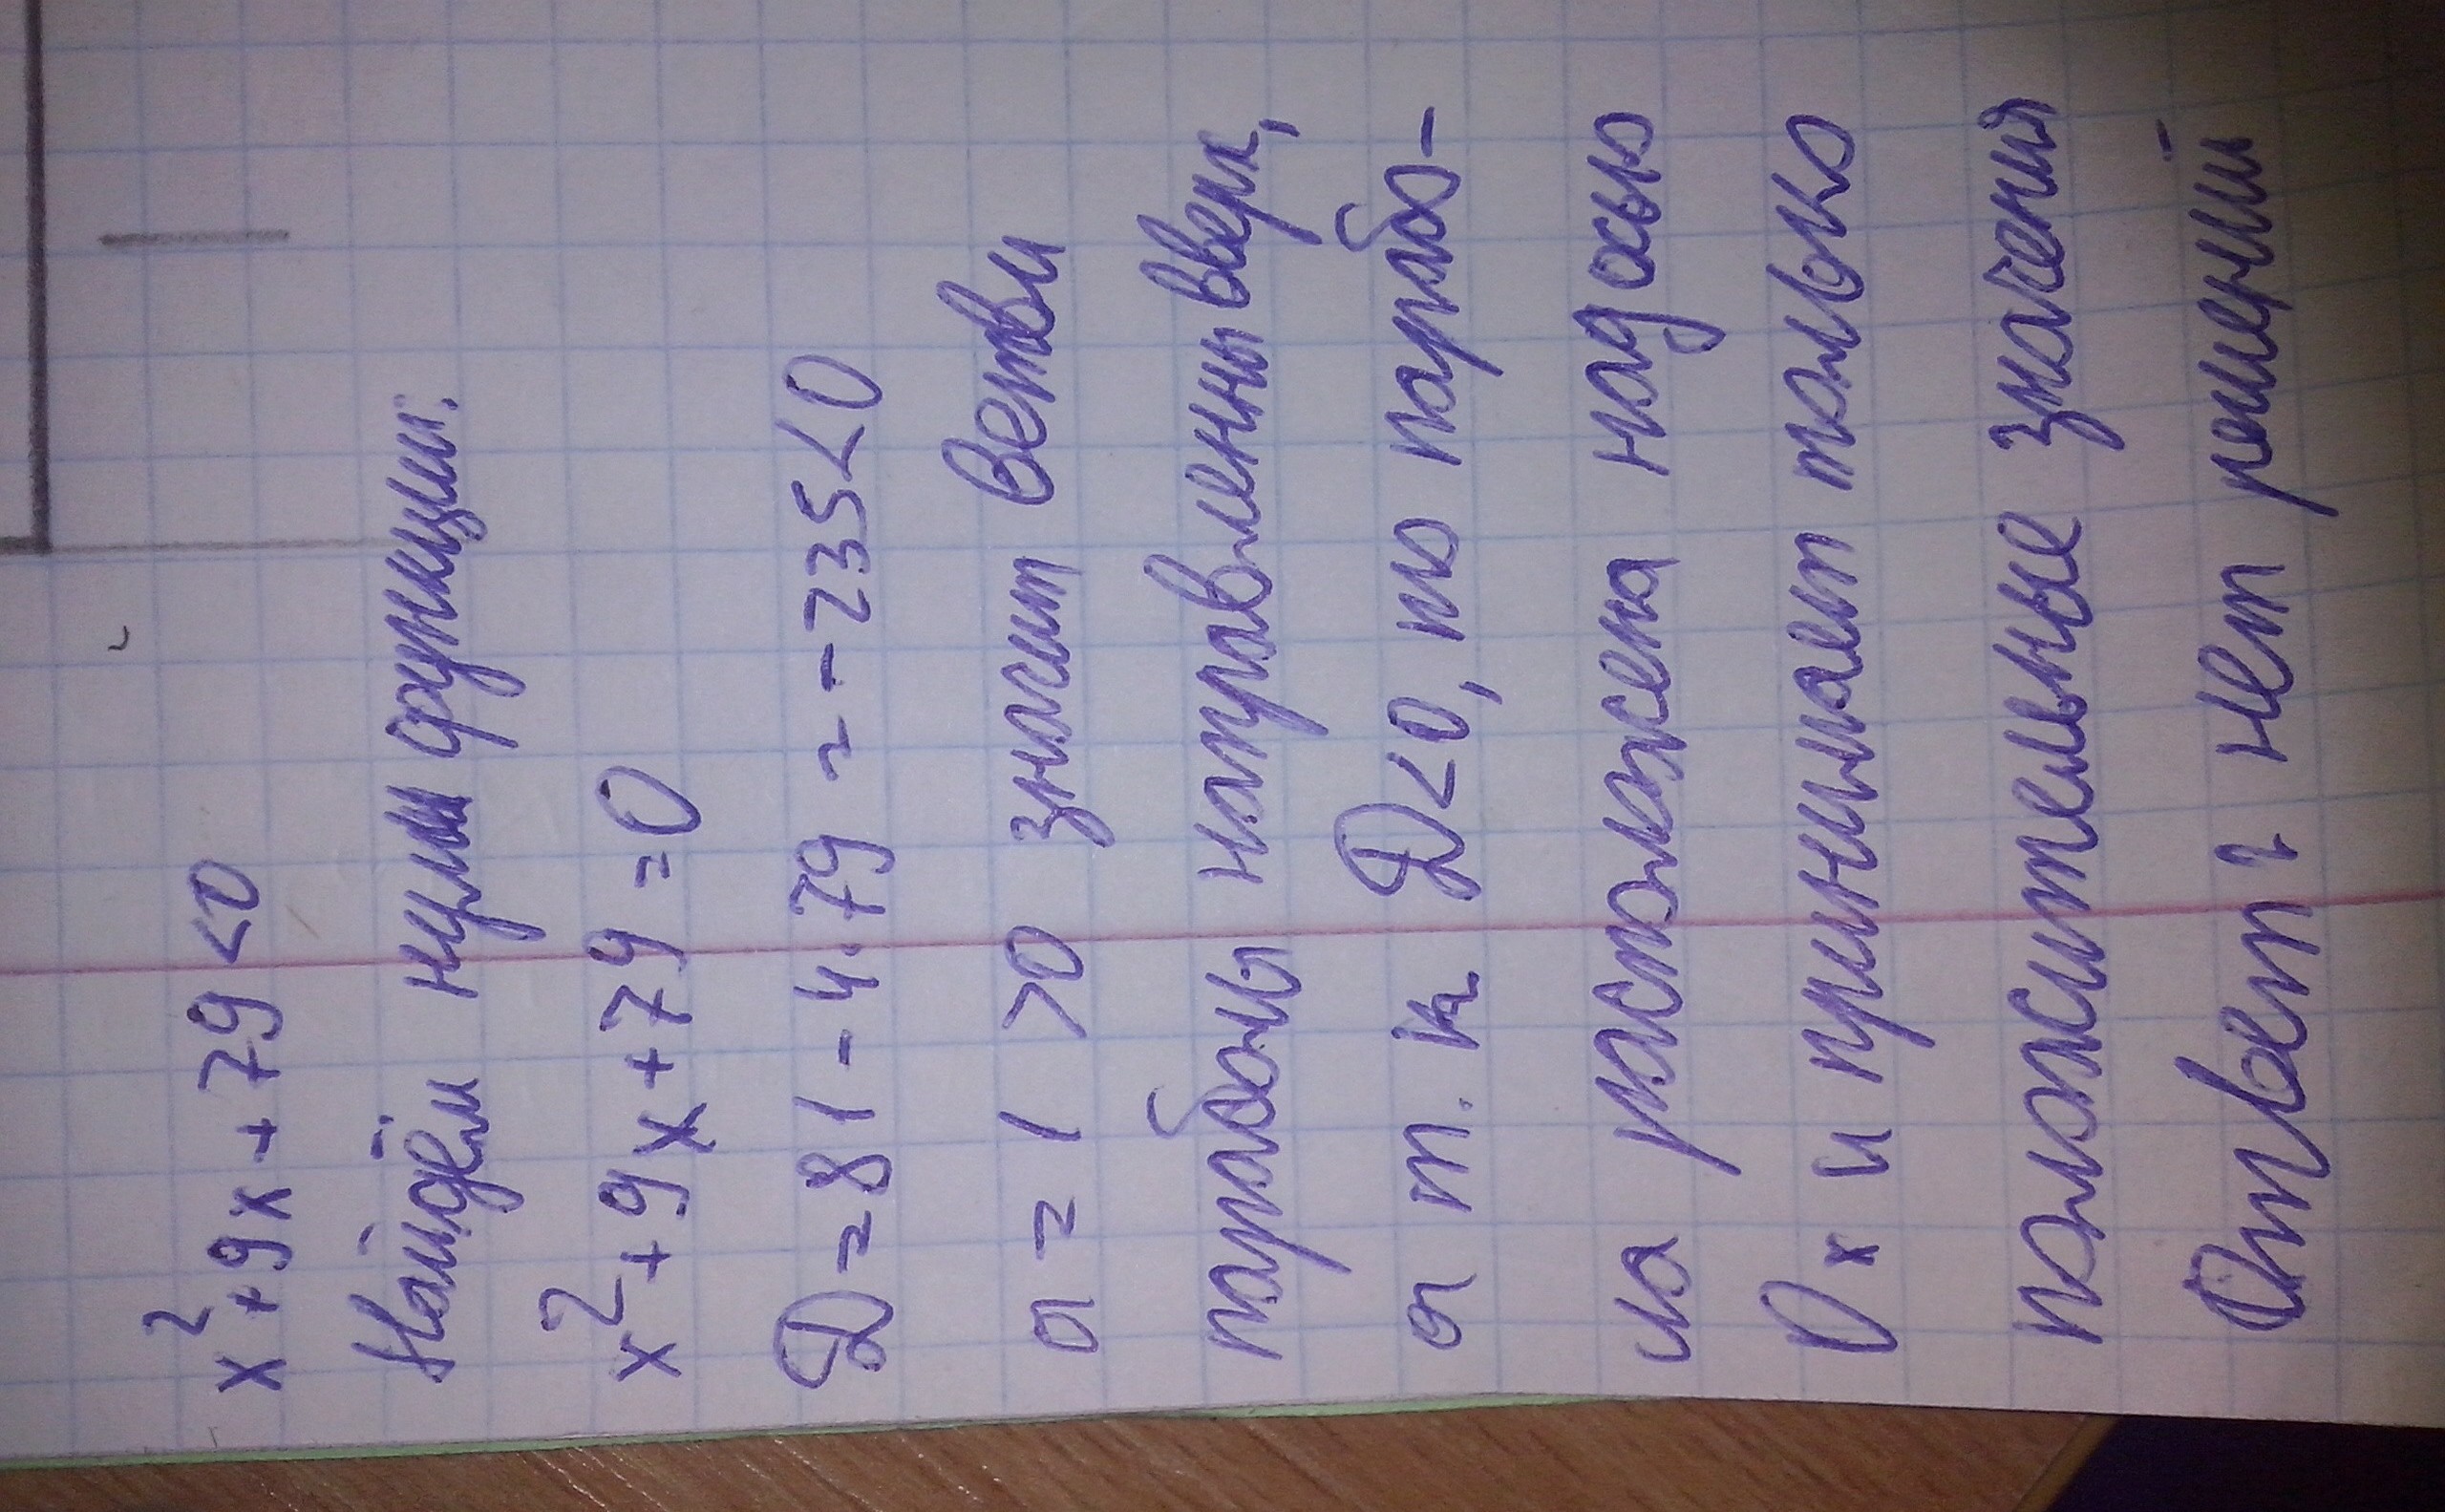 x²+9x+79<0
Найдём нули функции:
x²+9x+79=0
D=81-4·79=-235<0
a=1>0 значит ветви
параболы направленны вверх,
а т.к D<0, то парабо-
ла расположена над осью
Ox и принимает только
положительные значения
Ответ: нет решений